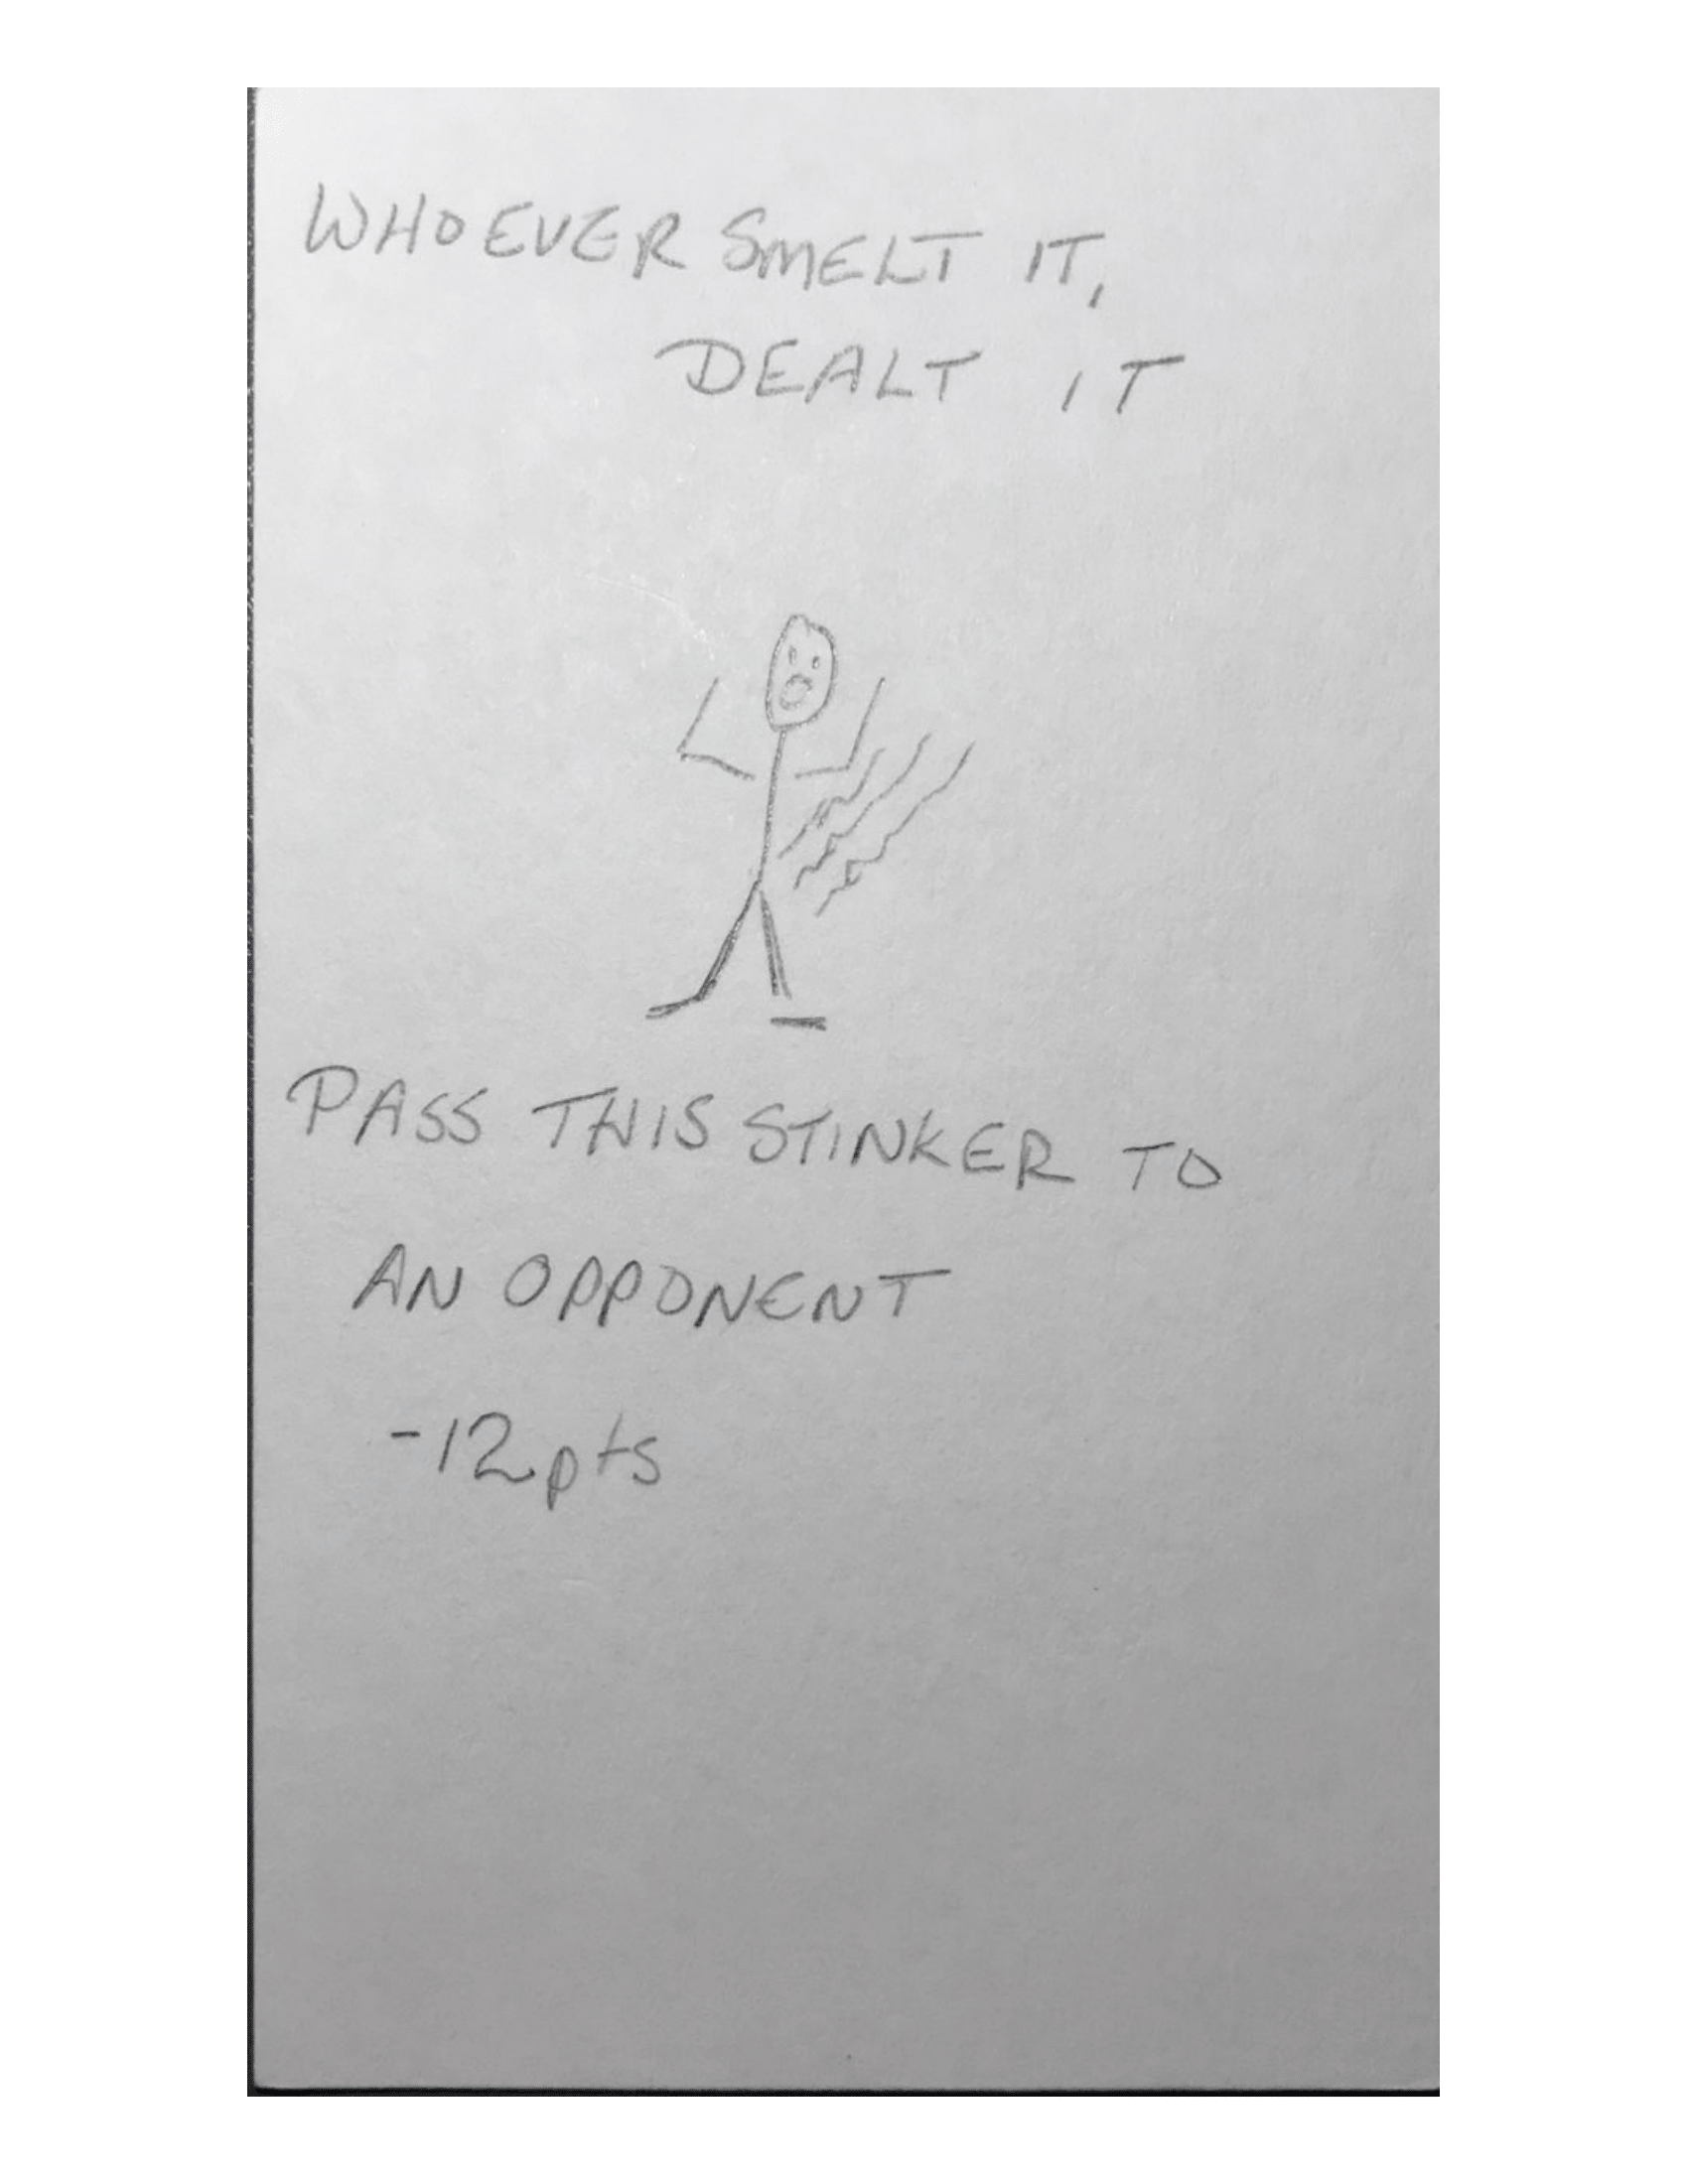 WHOEVER SMELT IT,
DEALT IT
PASS THIS STINKER TO
AN OPPONENT
-12pts